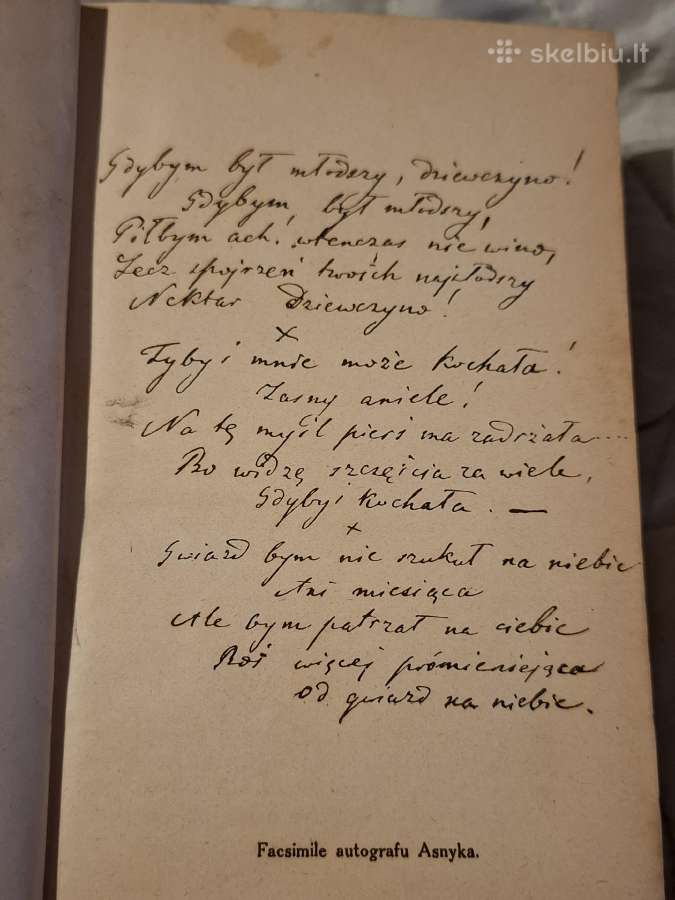 skelbiu.lt
Gdybym był młodszy, dziewczyno!
Gdybym był młodszy!
Piłbym ach! wtenczas nie wino,
Lecz spojrzeń twoich najsłodszy
Nektar Dziewczyno!
x
Tyby i mnie może kochała!
Jasny aniele!
Na tę myśl pierś ma zadrżała....
Bo widzę szczęścia za wiele,
Gdybyś kochała. —
x
Gwiazd bym nie szukał na niebie
Ani miesiąca
Ale bym patrzał na ciebie
Boś więcej promieniejąca
Od gwiazd na niebie.
Facsimile autografu Asnyka.